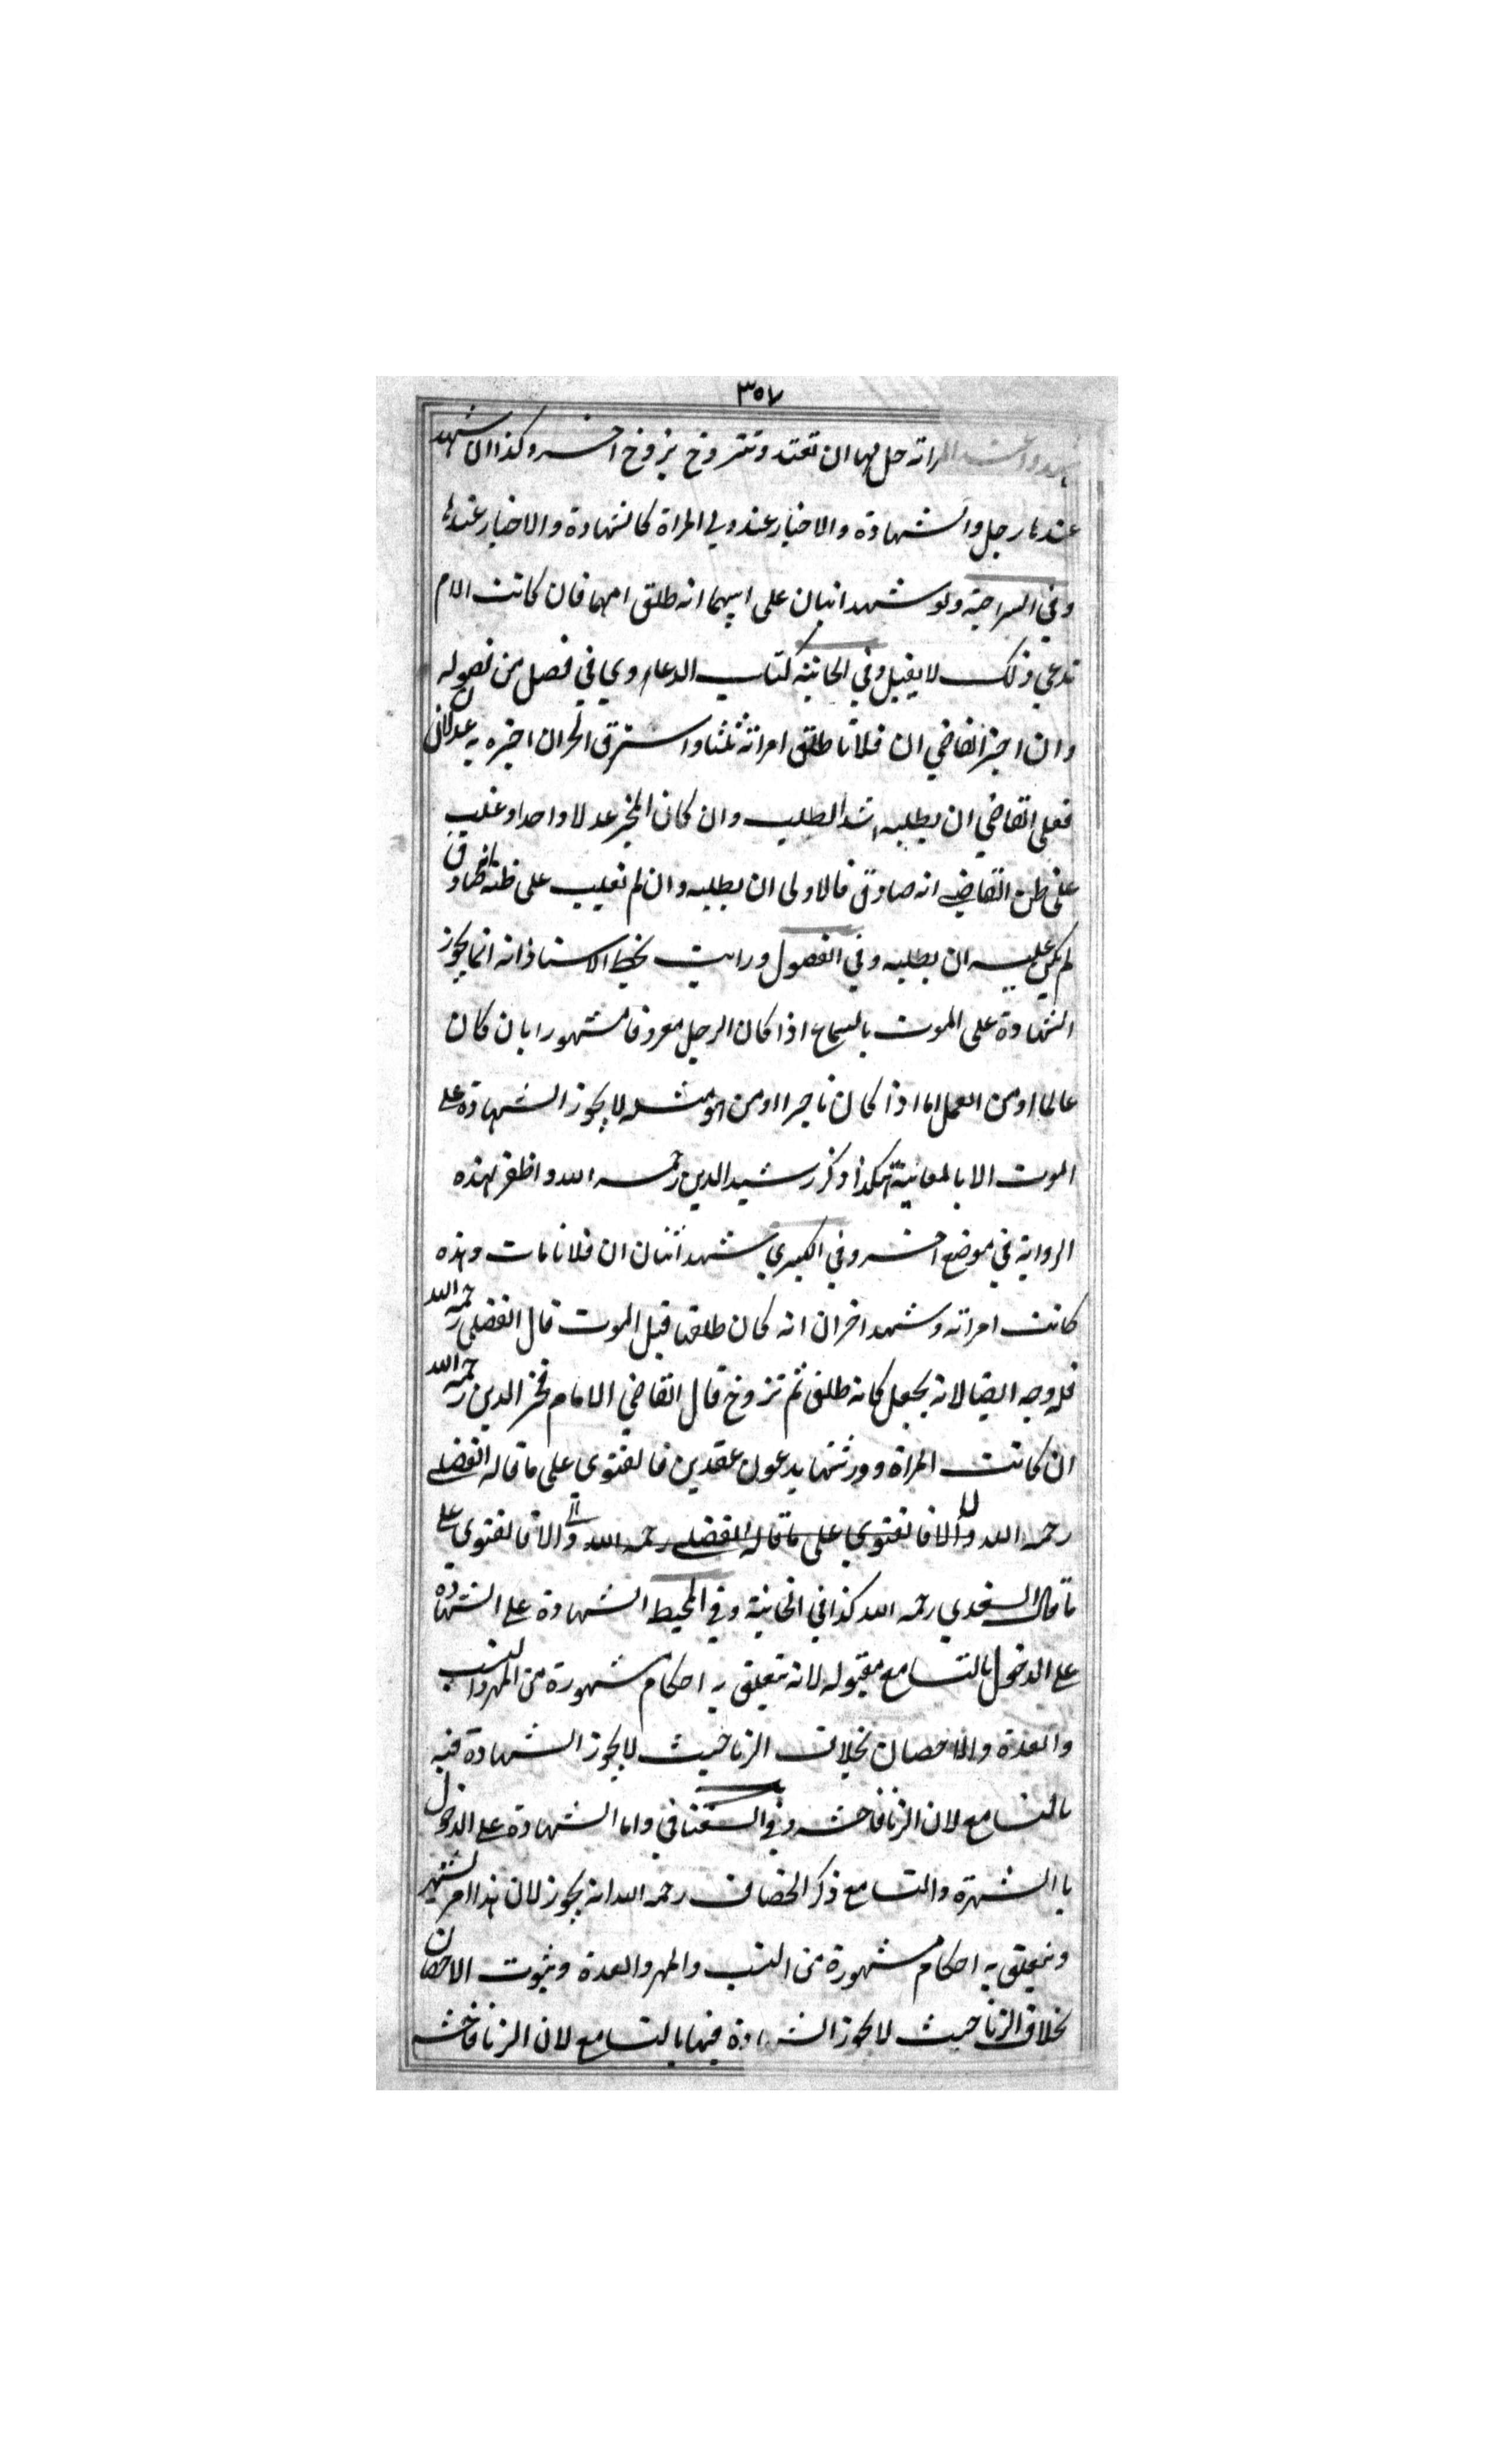 ٣٥٧
المراته حل لها ان تعتد وتتزوج بزوج اخر وكذا ان شهد
عندها رجل والشهادة والاخبار عند ولي المراة كالشهادة والاخبار عندها
وفي السراجية ولو شهد ابنان على ابيهما انه طلق امهما فان كانت الام
تدعي ذلك لا يقبل وفي الخانية كتاب الدعاوي في فصل من فصوله
وان اخبر القاضي ان فلانا طلق امراته ثلثا واسترق الحر ان اخبره به عدلان
فعلى القاضي ان يطلبه اشد الطلب وان كان المخبر عدلا واحدا وغلب
على ظن القاضي انه صادق فالاولى ان يطلبه وان لم يغلب على ظنه انه صادق
لم يكن عليه ان يطلبه وفي الفصول ورايت بخط الاستاذ انه انما يجوز
الشهادة على الموت بالسماع اذا كان الرجل معروفا مشهورا بان كان
عالما او من العمل اما اذا كان تاجرا او من هو مثله لا يجوز الشهادة على
الموت الا بالمعاينة هكذا ذكر رشيد الدين رحمه الله واظفر بهذه
الرواية في موضع اخر وفي الكبرى شهد اثنان ان فلانا مات وهذه
كانت امراته وشهد اخران انه كان طلقها قبل الموت قال الفضلي رحمه الله
فله وجه ايضا لانه يجعل كانه طلق ثم تزوج قال القاضي الامام فخر الدين رحمه الله
ان كانت المراة وورثتها يدعون عقدين فالفتوى على ما قاله الفضلي
رحمه الله والا فالفتوي على ما قاله الفضلي رحمه الله والا فالفتوي على
ما قال السغدي رحمه الله كذا في الخانية وفي المحيط الشهادة على الشهادة
على الدخول بالتسامع مقبوله لانه يتعلق به احكام مشهورة من المهر والنسب
والعدة والاحصان بخلاف الزنا حيث لا يجوز الشهادة فيه
بالتسامع لان الزنا فاحشه وفي السغناقي واما الشهادة على الدخول
باالشهرة والتسامع ذكر الخصاف رحمه الله انه يجوز لان هذا امر يشتهر
ويتعلق به احكام مشهورة من النسب والمهر والعدة وثبوت الاحصان
بخلاف الزنا حيث لا يجوز الشهادة فيها بالتسامع لان الزنا فاحشه